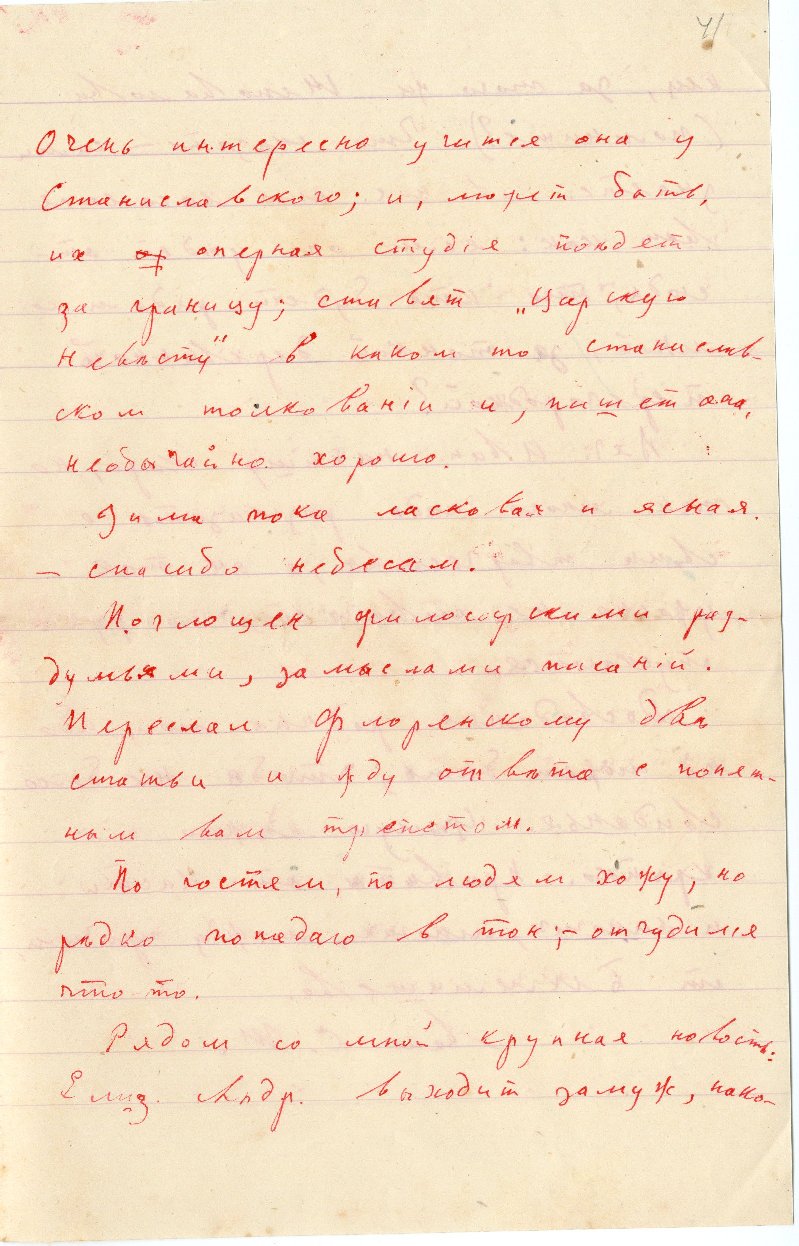 4/
Очень интересно учится она у
Станиславского; и, может быть,
их оперная студiя поѣдет
за границу; ставят „Царскую
Невѣсту" в каком то станислав-
ском толкованiи и, пишет она,
необычайно хорошо.
Зима пока ласковая и ясная.
– спасибо небесам.
Поглощен философскими раз-
думьями, замыслами писанiй.
Переслал Флоренскому двѣ
статьи и жду отвѣта с понят-
ным вам трепетом.
По гостям, по людям хожу, но
рѣдко попадаю в тон; – отчудился
что то.
Рядом со мной крупная новость:
Елиз. Андр. выходит замуж, нако-